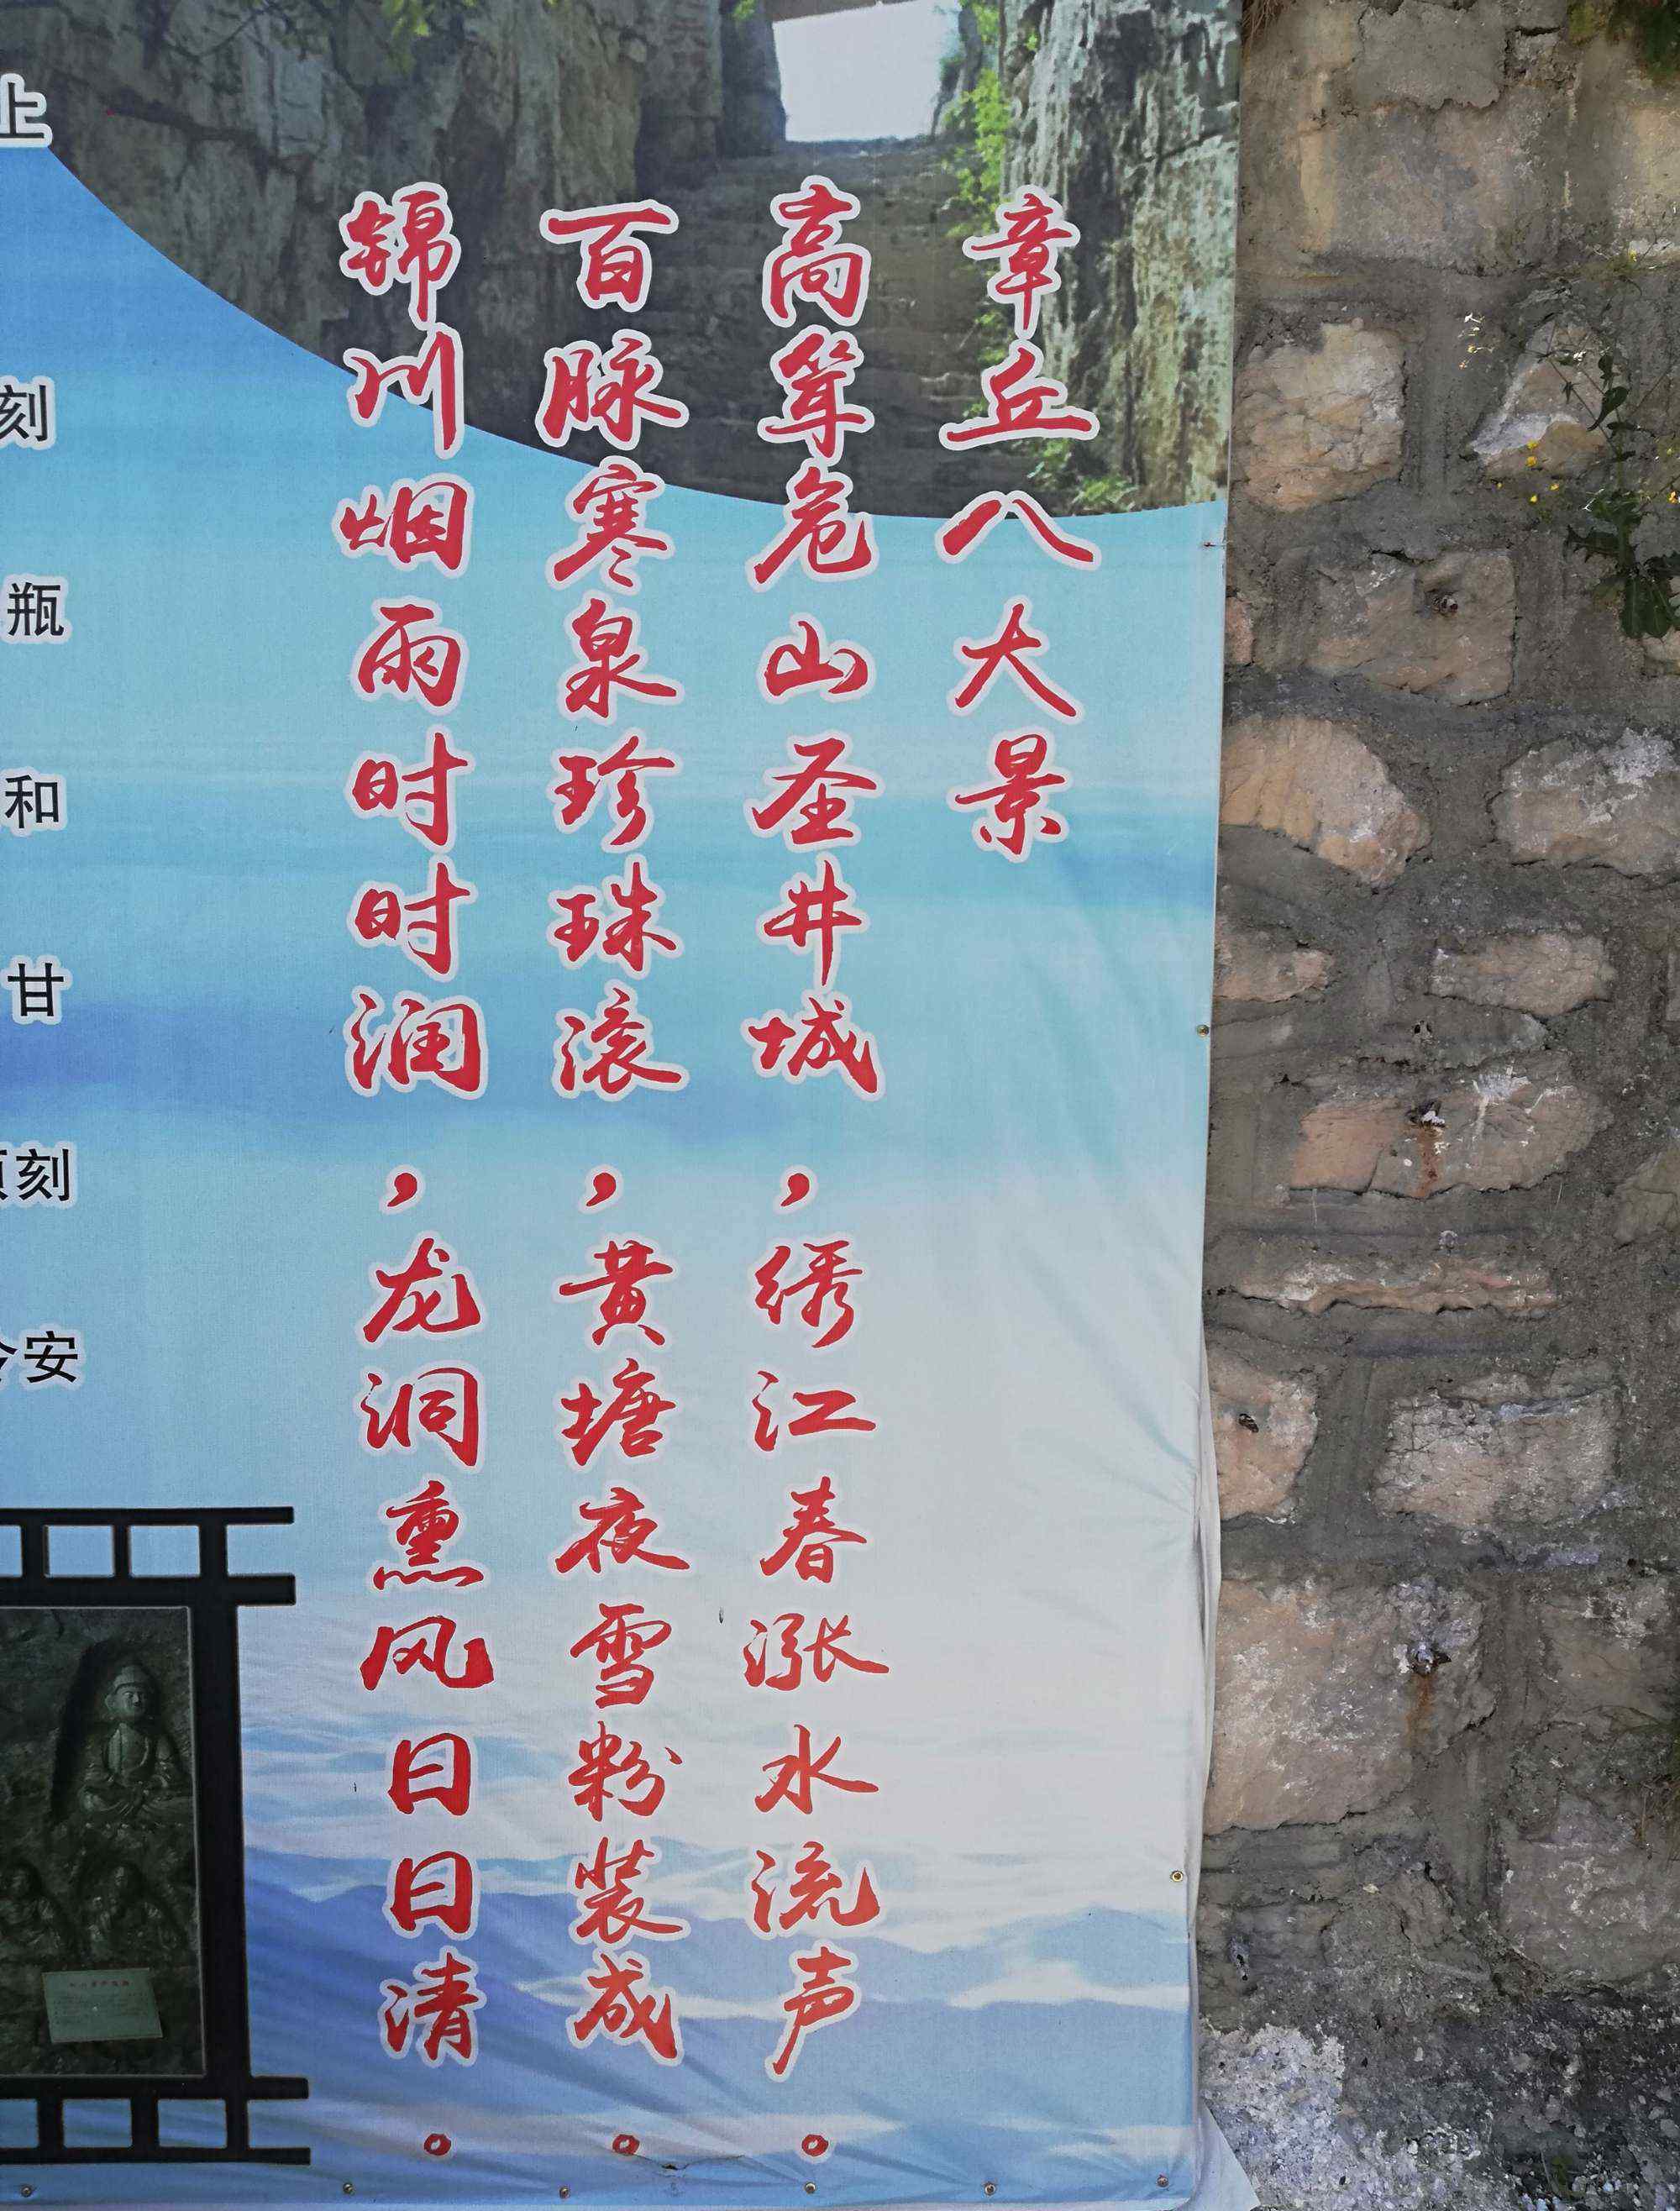 章丘八大景
高耸危山圣井城，绣江春涨水流声。
百脉寒泉珍珠滚，黄塘夜雪粉装成。
锦川烟雨时时润，龙洞熏风日日清。
止
刻
瓶
和
甘
刻
安